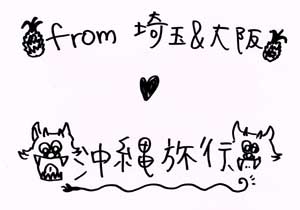 from 埼玉&大阪
沖縄旅行